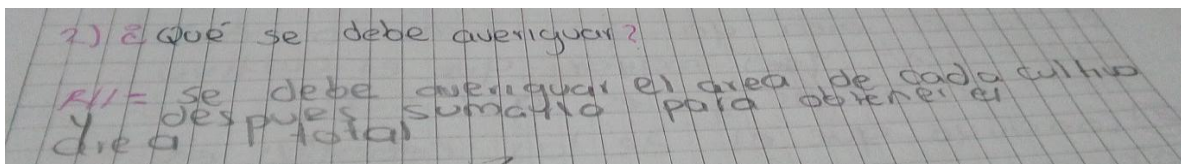 2) ¿Qué se debe averiguar?
R//= se debe averiguar el area de cada cultivo
y después sumarlo para obtener el
area total